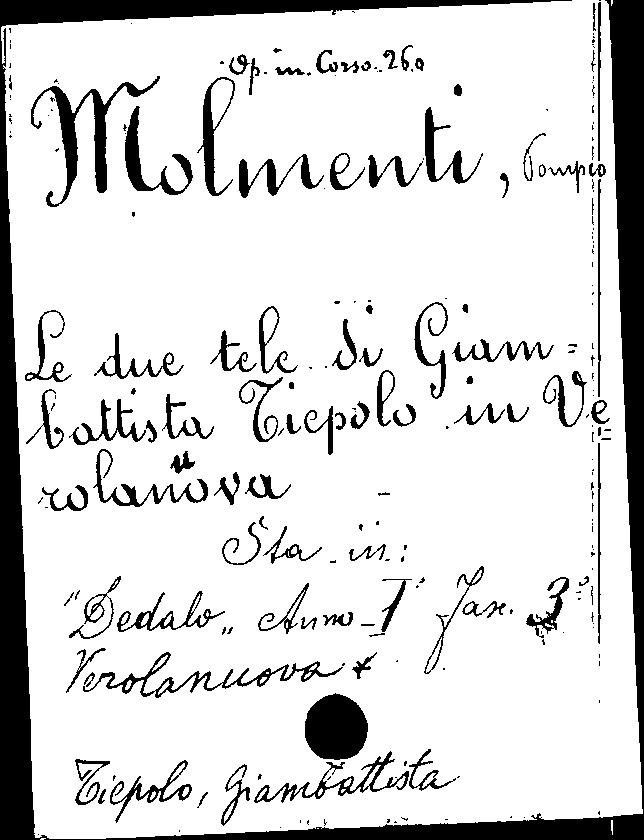 Op. in Corso. 260
Molmenti, Pompeo
Le due tele di Giam=
battista Tiepolo in Ve=
rolanuova
Sta in:
"Dedalo„ Anno I° Fasc. 3°
Verolanuova *
Tiepolo, Giambattista